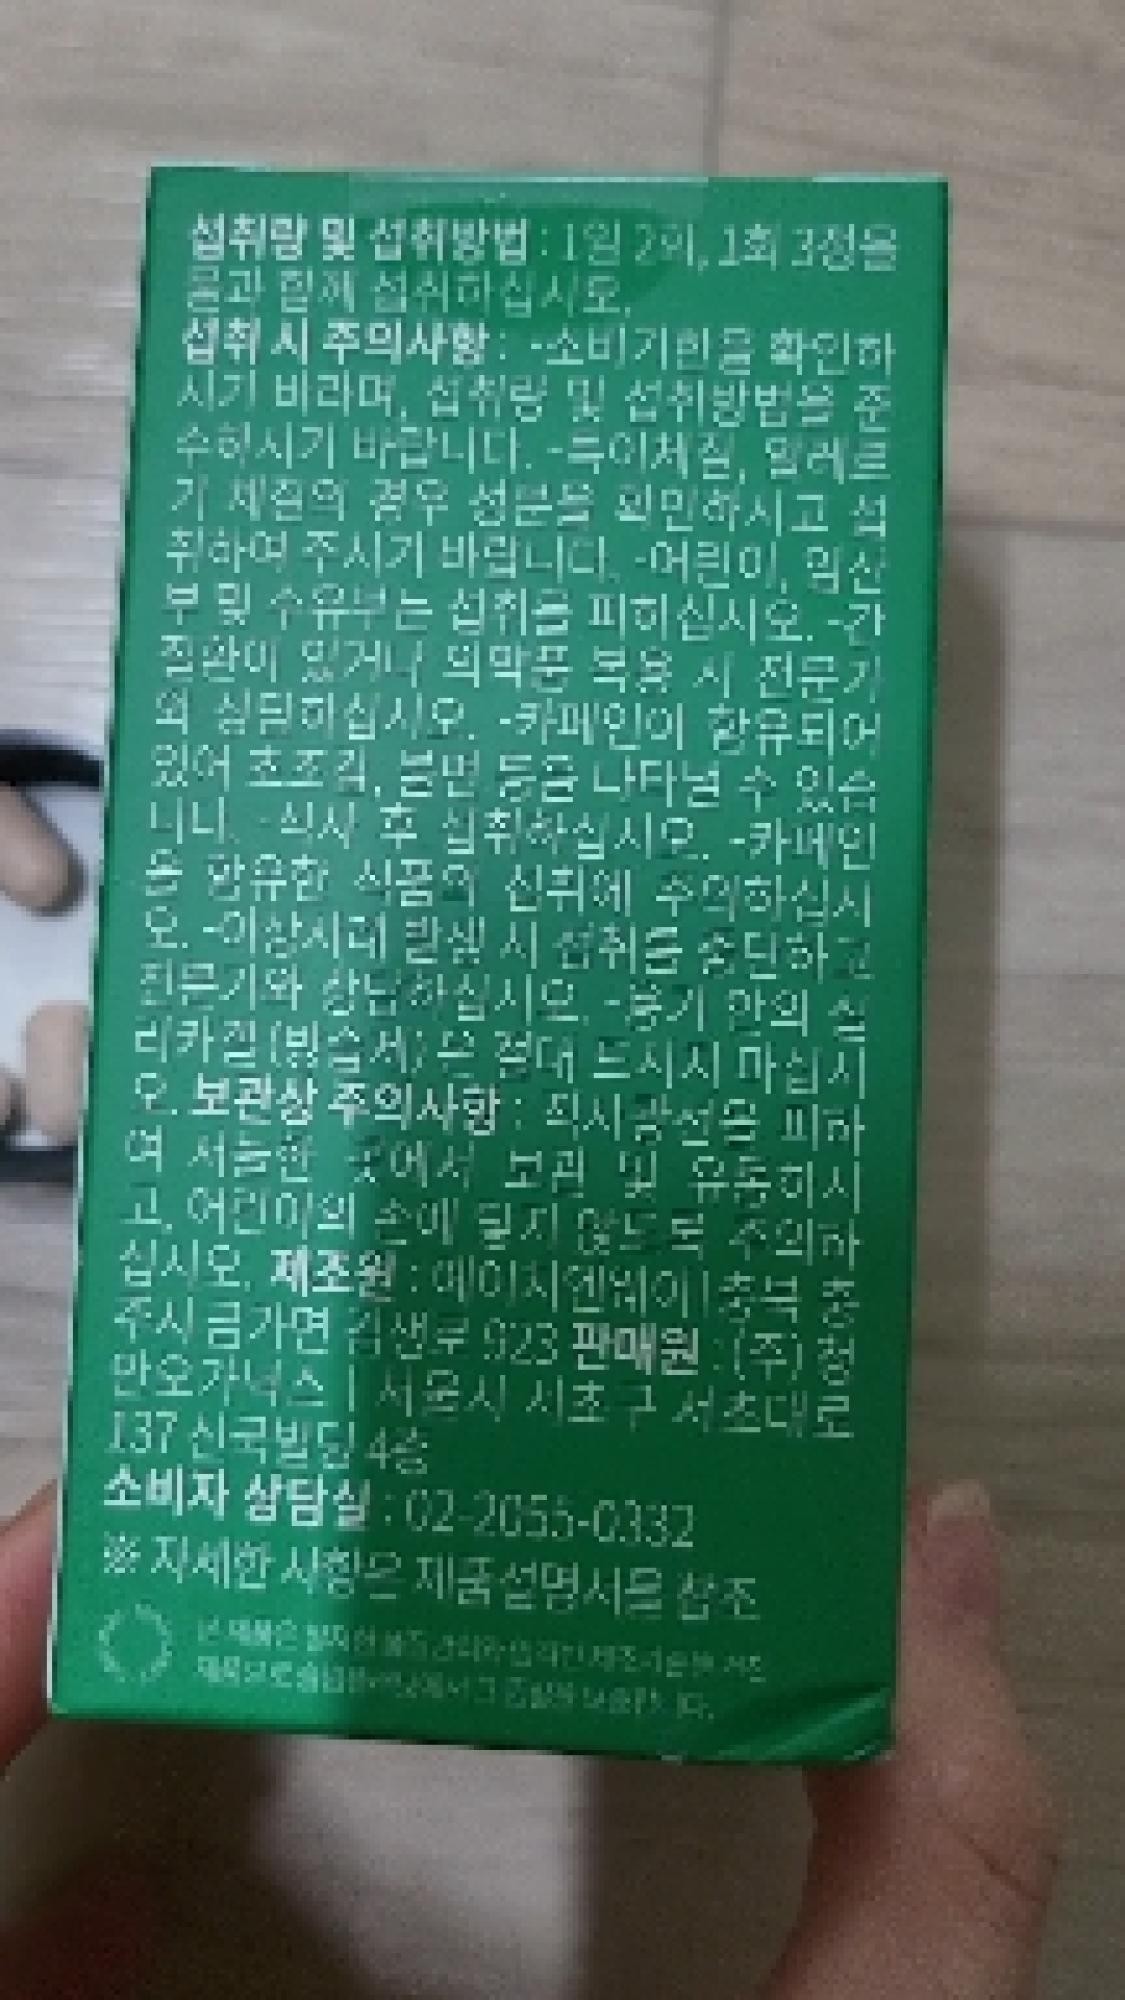 섭취량 및 섭취방법 : 1일 2회, 1회 3정을
물과 함께 섭취하십시오.
섭취 시 주의사항 : -소비기한을 확인하
시기 바라며, 섭취량 및 섭취방법을 준
수하시기 바랍니다. -특이체질, 알레르
기 체질의 경우 성분을 확인하시고 섭
취하여 주시기 바랍니다. -어린이, 임산
부 및 수유부는 섭취를 피하십시오. -간
질환이 있거나 의약품 복용 시 전문가
와 상담하십시오. -카페인이 함유되어
있어 초조감, 불면 등을 나타낼 수 있습
니다. -식사 후 섭취하십시오. -카페인
을 함유한 식품의 섭취에 주의하십시
오. -이상사례 발생 시 섭취를 중단하고
전문가와 상담하십시오. -용기 안의 실
리카겔(방습제)은 절대 드시지 마십시
오. 보관상 주의사항 : 직사광선을 피하
여 서늘한 곳에서 보관 및 유통하시
고, 어린이의 손에 닿지 않도록 주의하
십시오. 제조원 : 에이치엔웨이 | 충북 충
주시 금가면 김생로 923 판매원 : (주) 청
만오가닉스 | 서울시 서초구 서초대로
137 신국빌딩 4층
소비자 상담실 : 02-2055-0332
※ 자세한 사항은 제품설명서를 참조